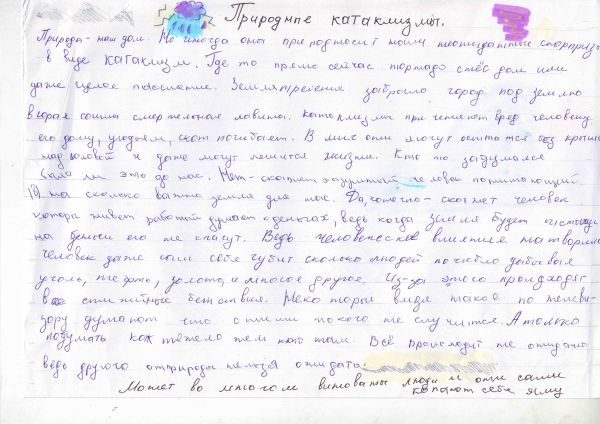 Природные катаклизмы.
Природа - наш дом. Но иногда она преподносит нам неожиданные сюрпризы
в виде катаклизм. Где то прямо сейчас торнадо снёс дом или
даже целое поселение. Землятресение забрало город под землю
в горах сошла смертельная лавина. Катоклизмы причиняют вред человеку
его дому, угодьям, скот погибает. В миг они могут остатся без крыши
над головой и даже могут лишится жизни. Кто то задумался
было ли это до нас. Нет - скажет задумчивый человек понимающий
на сколько важна земля для нас. Да, конечно - скажет человек
который живет работай думает о деньгах, ведь когда земля будет
на деньги его не спасут. Ведь человеческое влияние натворили
человек даже сам себя губит сколько людей погибло добывая
уголь, нефть, золото и многое другое. Из-за этого происходят
все стихийные бедствия. Некоторые видя такое по телеви-
зору думают что с ними такого не случится. А только
подумать как тяжело тем кто там. Всё происходит не ожиданно
ведь другого от природы нельзя ожидать.
Может во многом виноваты люди и они сами
копают себе яму